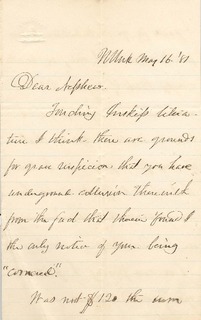 May 16 '81
Dear Nephew.
Finding
I think there are grounds
for grave suspicion that you have
underground collusion therewith
from the fact that therein found I
the only notice of your being
"cornered."
Was not $120 the sum